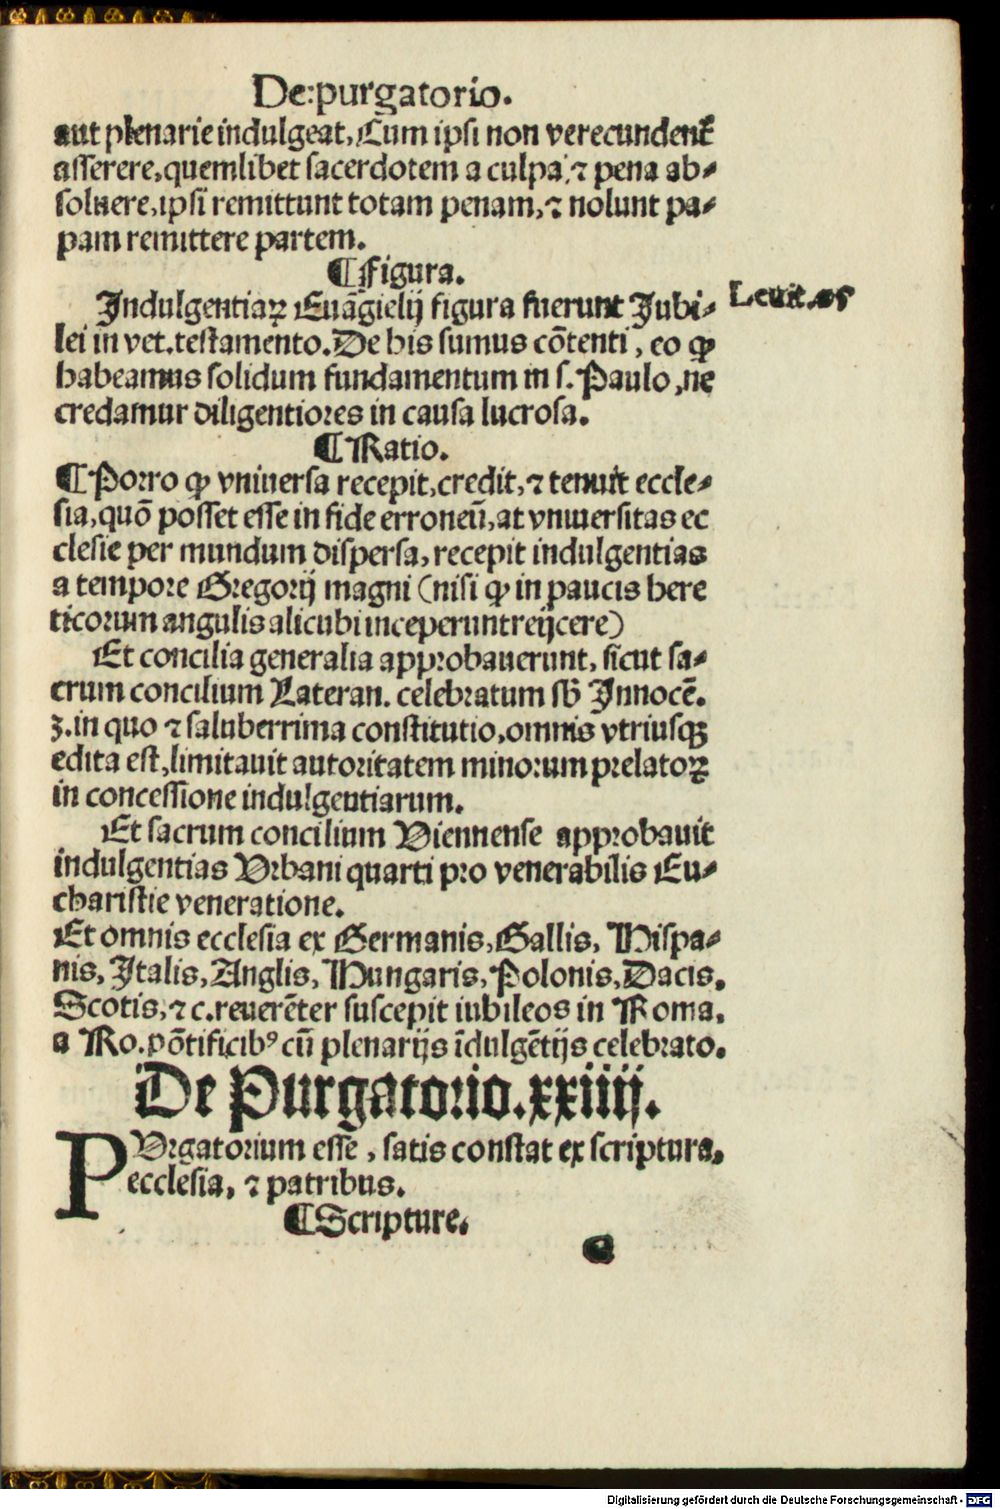 De purgatorio.
aut plenarie indulgeat, Cum ipsi non verecundent̃
asserere, quemlibet sacerdotem a culpa ⁊ pena ab⸗
soluere, ipsi remittunt totam penam, ⁊ nolunt pa⸗
pam remittere partem.
¶ Figura.
Indulgentiaꝝ Euãgielij figura fuerunt Jubi⸗
Leuit. 25
lei in vet. testamento. De his sumus cõtenti, eo ꝙ
habeamus solidum fundamentum in s. Paulo, ne
credamur diligentiores in causa lucrosa.
¶ Ratio.
¶ Porro ꝙ vniuersa recepit, credit, ⁊ tenuit eccle⸗
sia, quõ posset esse in fide erroneũ, at vniuersitas ec
clesie per mundum dispersa, recepit indulgentias
a tempore Gregorij magni (nisi ꝙ in paucis here
ticorum angulis alicubi inceperunt reijcere)
Et concilia generalia approbauerunt, sicut sa⸗
crum concilium Lateran. celebratum sb̃ Innocẽ.
3. in quo ⁊ saluberrima constitutio, omnis vtriusqꝫ
edita est, limitauit autoritatem minorum prelatoꝝ
in concessione indulgentiarum.
Et sacrum concilium Viennense approbauit
indulgentias Vrbani quarti pro venerabilis Eu⸗
charistie veneratione.
Et omnis ecclesia ex Germanis, Gallis, Hispa⸗
nis, Italis, Anglis, Hungaris, Polonis, Dacis.
Scotis, ⁊ c. reuerẽter suscepit iubileos in Roma.
a Ro. põtificibꝰ cũ plenarijs ĩdulgẽtijs celebrato.
De Purgatorio. xxiiij.
PVrgatorium esse, satis constat ex scriptura,
ecclesia, ⁊ patribus.
¶ Scripture.
Digitalisierung gefördert durch die Deutsche Forschungsgemeinschaft - DFG